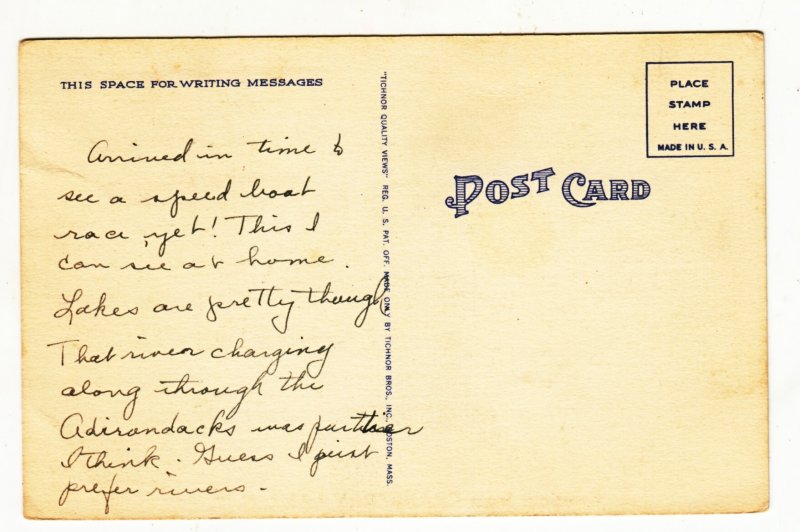 THIS SPACE FOR WRITING MESSAGES
Arrived in time to
see a speed boat
race, yet! This I
can see at home.
Lakes are pretty though
That river charging
along through the
Adirondacks was prettier
I think. Guess I just
prefer rivers.
"TICHNOR QUALITY VIEWS" REG. U. S. PAT. OFF. MADE ONLY BY TICHNOR BROS., INC., BOSTON, MASS.
POST CARD
PLACE
STAMP
HERE
MADE IN U. S. A.